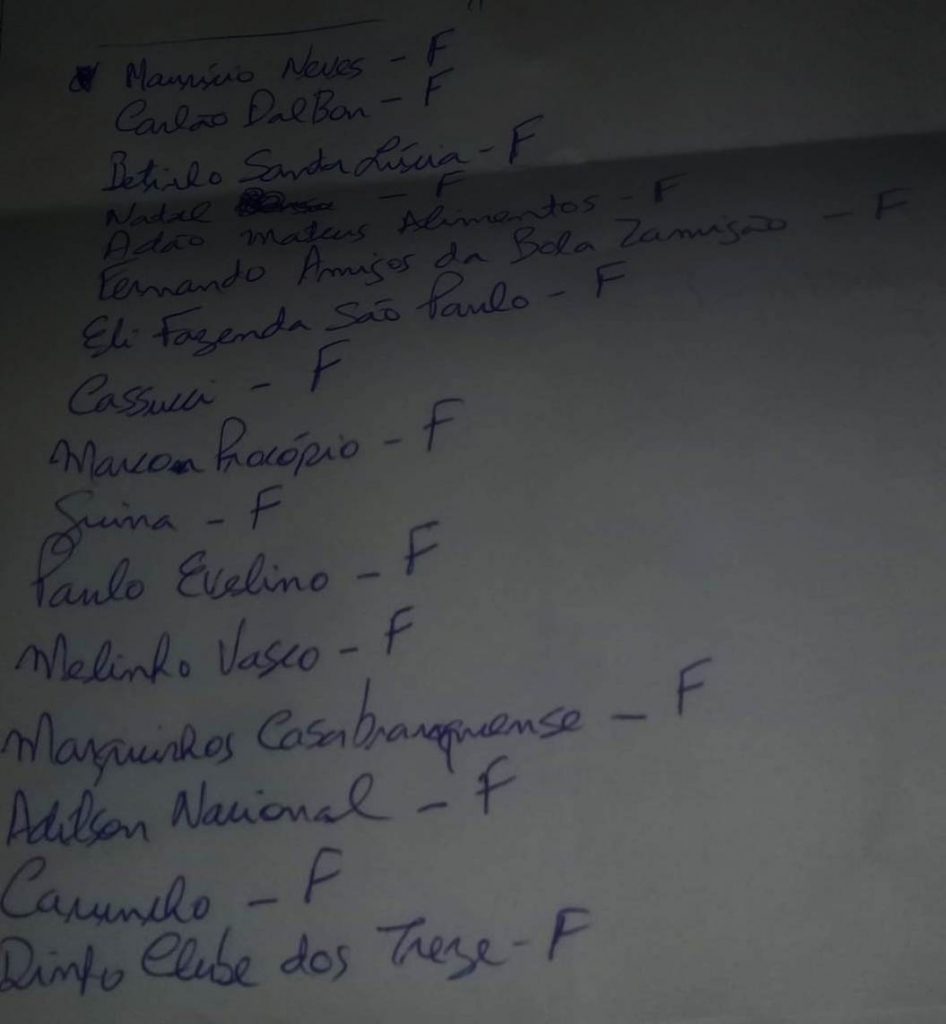 Maurício Neves - F
Carlão DalBon - F
Betinho Santa Lúcia - F
Natal - F
Adão Mateus Alimentos - F
Fernando Amigos da Bola Zamisão - F
Eli Fazenda São Paulo - F
Cassucci - F
Marcon Procópio - F
- F
Paulo Evelino - F
Melinho Vasco - F
Marquinhos Casabranquense - F
Adilson Nacional - F
Caruncho - F
Clube dos Treze - F